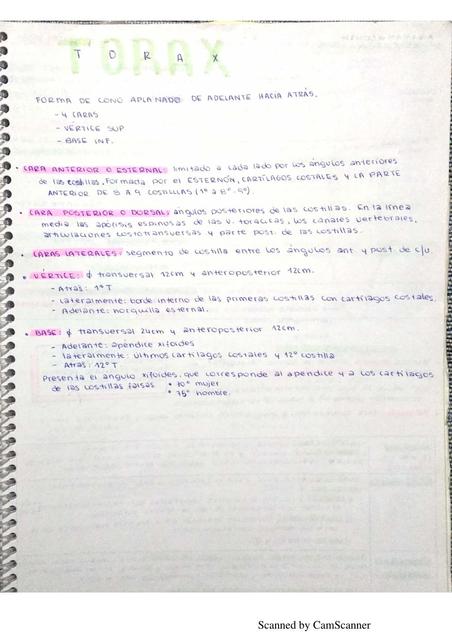 TORAX
T O R A X
FORMA DE CONO APLANADO DE ADELANTE HACIA ATRÁS.
- 4 CARAS
- VÉRTICE SUP
- BASE INF.
• CARA ANTERIOR O ESTERNAL: limitado a cada lado por los ángulos anteriores
de las costillas. Formada por el ESTERNÓN, CARTÍLAGOS COSTALES Y LA PARTE
ANTERIOR DE 8 A 9 COSTILLAS (1º a 8º-9º).
• CARA POSTERIOR O DORSAL: ángulos posteriores de las costillas. En la línea
media las apófisis espinosas de las v. torácicas, los canales vertebrales,
articulaciones costotransversas y parte post. de las costillas.
• CARAS LATERALES: segmento de costilla entre los ángulos ant. y post. de c/u.
• VÉRTICE: ϕ transversal 12cm y anteroposterior 12cm.
- Atrás: 1º T
- Lateralmente: borde interno de las primeras costillas con cartílagos costales.
- Adelante: horquilla esternal.
• BASE: ϕ transversal 24cm y anteroposterior 12cm.
- Adelante: apéndice xifoides
- lateralmente: últimos cartílagos costales y 12º costilla
- Atrás: 12º T
Presenta el ángulo xifoides, que corresponde al apéndice y a los cartílagos
de las costillas falsas • 70º mujer
• 75º hombre.
Scanned by CamScanner